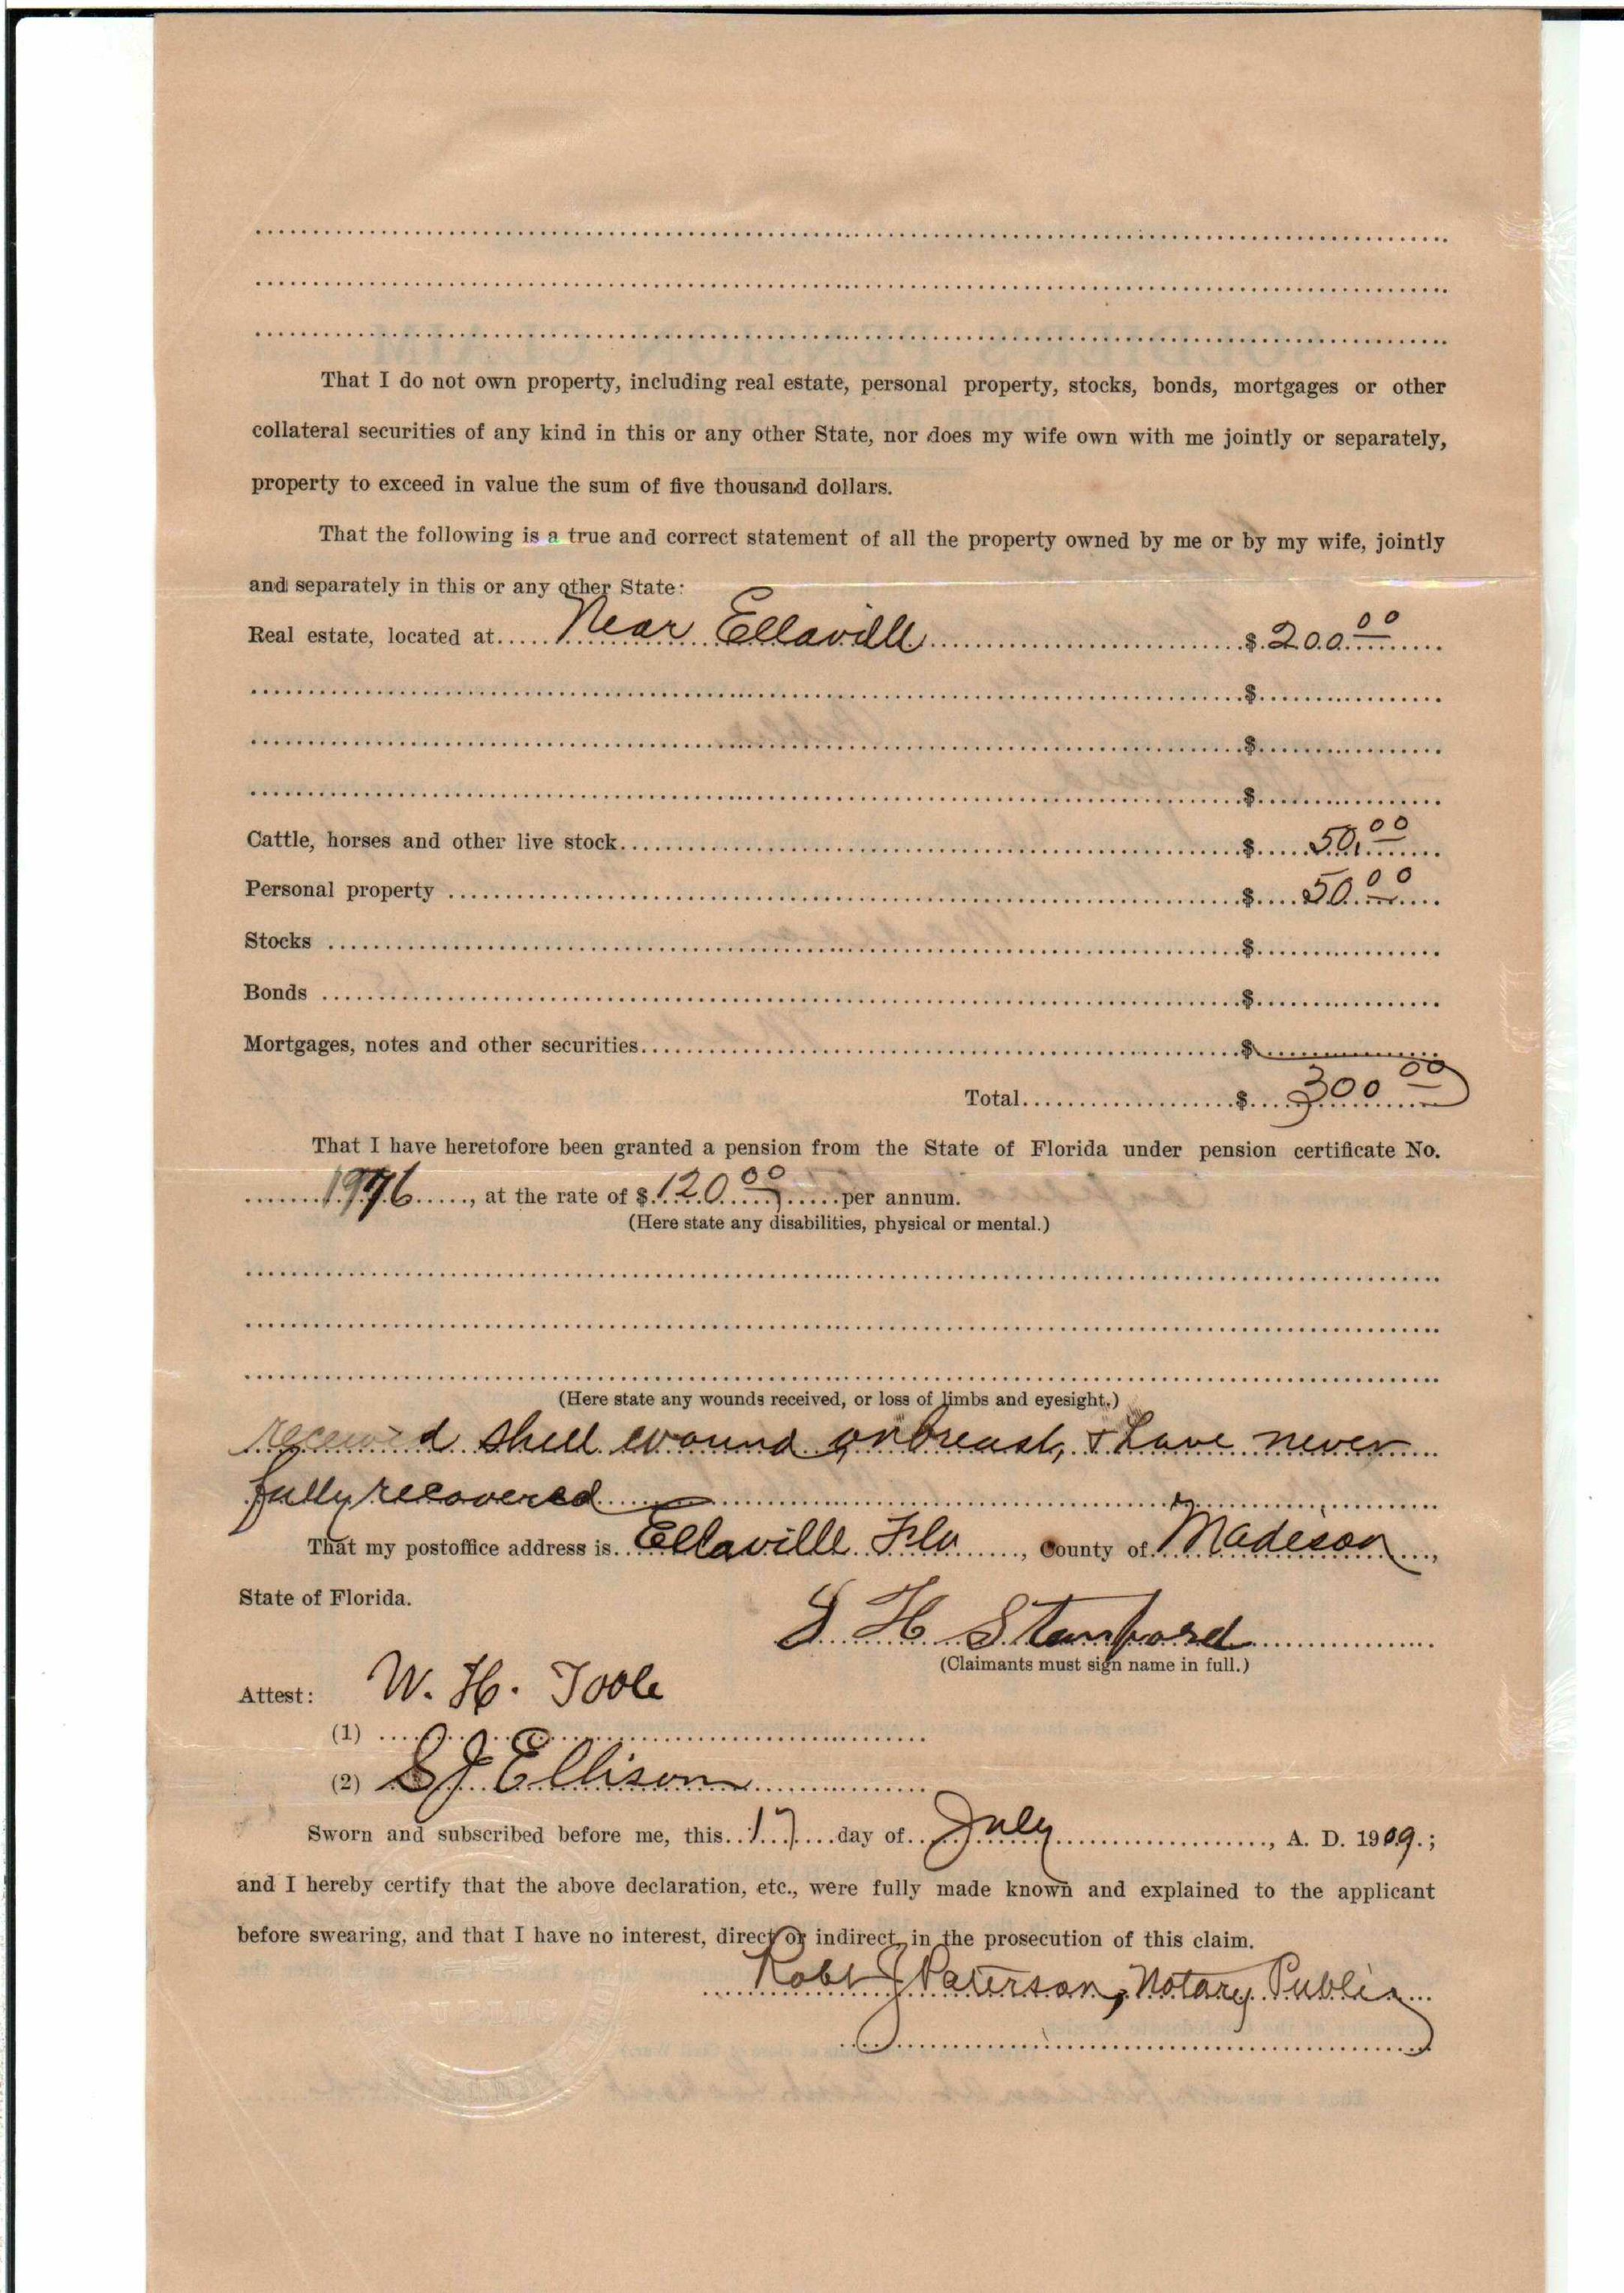 That I do not own property, including real estate, personal property, stocks, bonds, mortgages or other
collateral securities of any kind in this or any other State, nor does my wife own with me jointly or separately,
property to exceed in value the sum of five thousand dollars.
That the following is a true and correct statement of all the property owned by me or by my wife, jointly
and separately in this or any other State:
Real estate, located at Near Ellaville $ 200.00
$
$
$
Cattle, horses and other live stock $ 50.00
Personal property $ 50.00
Stocks $
Bonds $
Mortgages, notes and other securities $
Total $ 300 00
That I have heretofore been granted a pension from the State of Florida under pension certificate No.
1976, at the rate of $ 120.00 per annum.
(Here state any disabilities, physical or mental.)
(Here state any wounds received, or loss of limbs and eyesight.)
received shell wound on breast, & have never
fully recovered
That my postoffice address is Ellaville Fla, County of Madison,
State of Florida.
H Stanford
(Claimants must sign name in full.)
W. H. Toole
Attest:
(1)
(2) S J Ellison
Sworn and subscribed before me, this 17 day of July, A. D. 1909.;
and I hereby certify that the above declaration, etc., were fully made known and explained to the applicant
before swearing, and that I have no interest, direct or indirect, in the prosecution of this claim.
Robt J Paterson, Notary Public